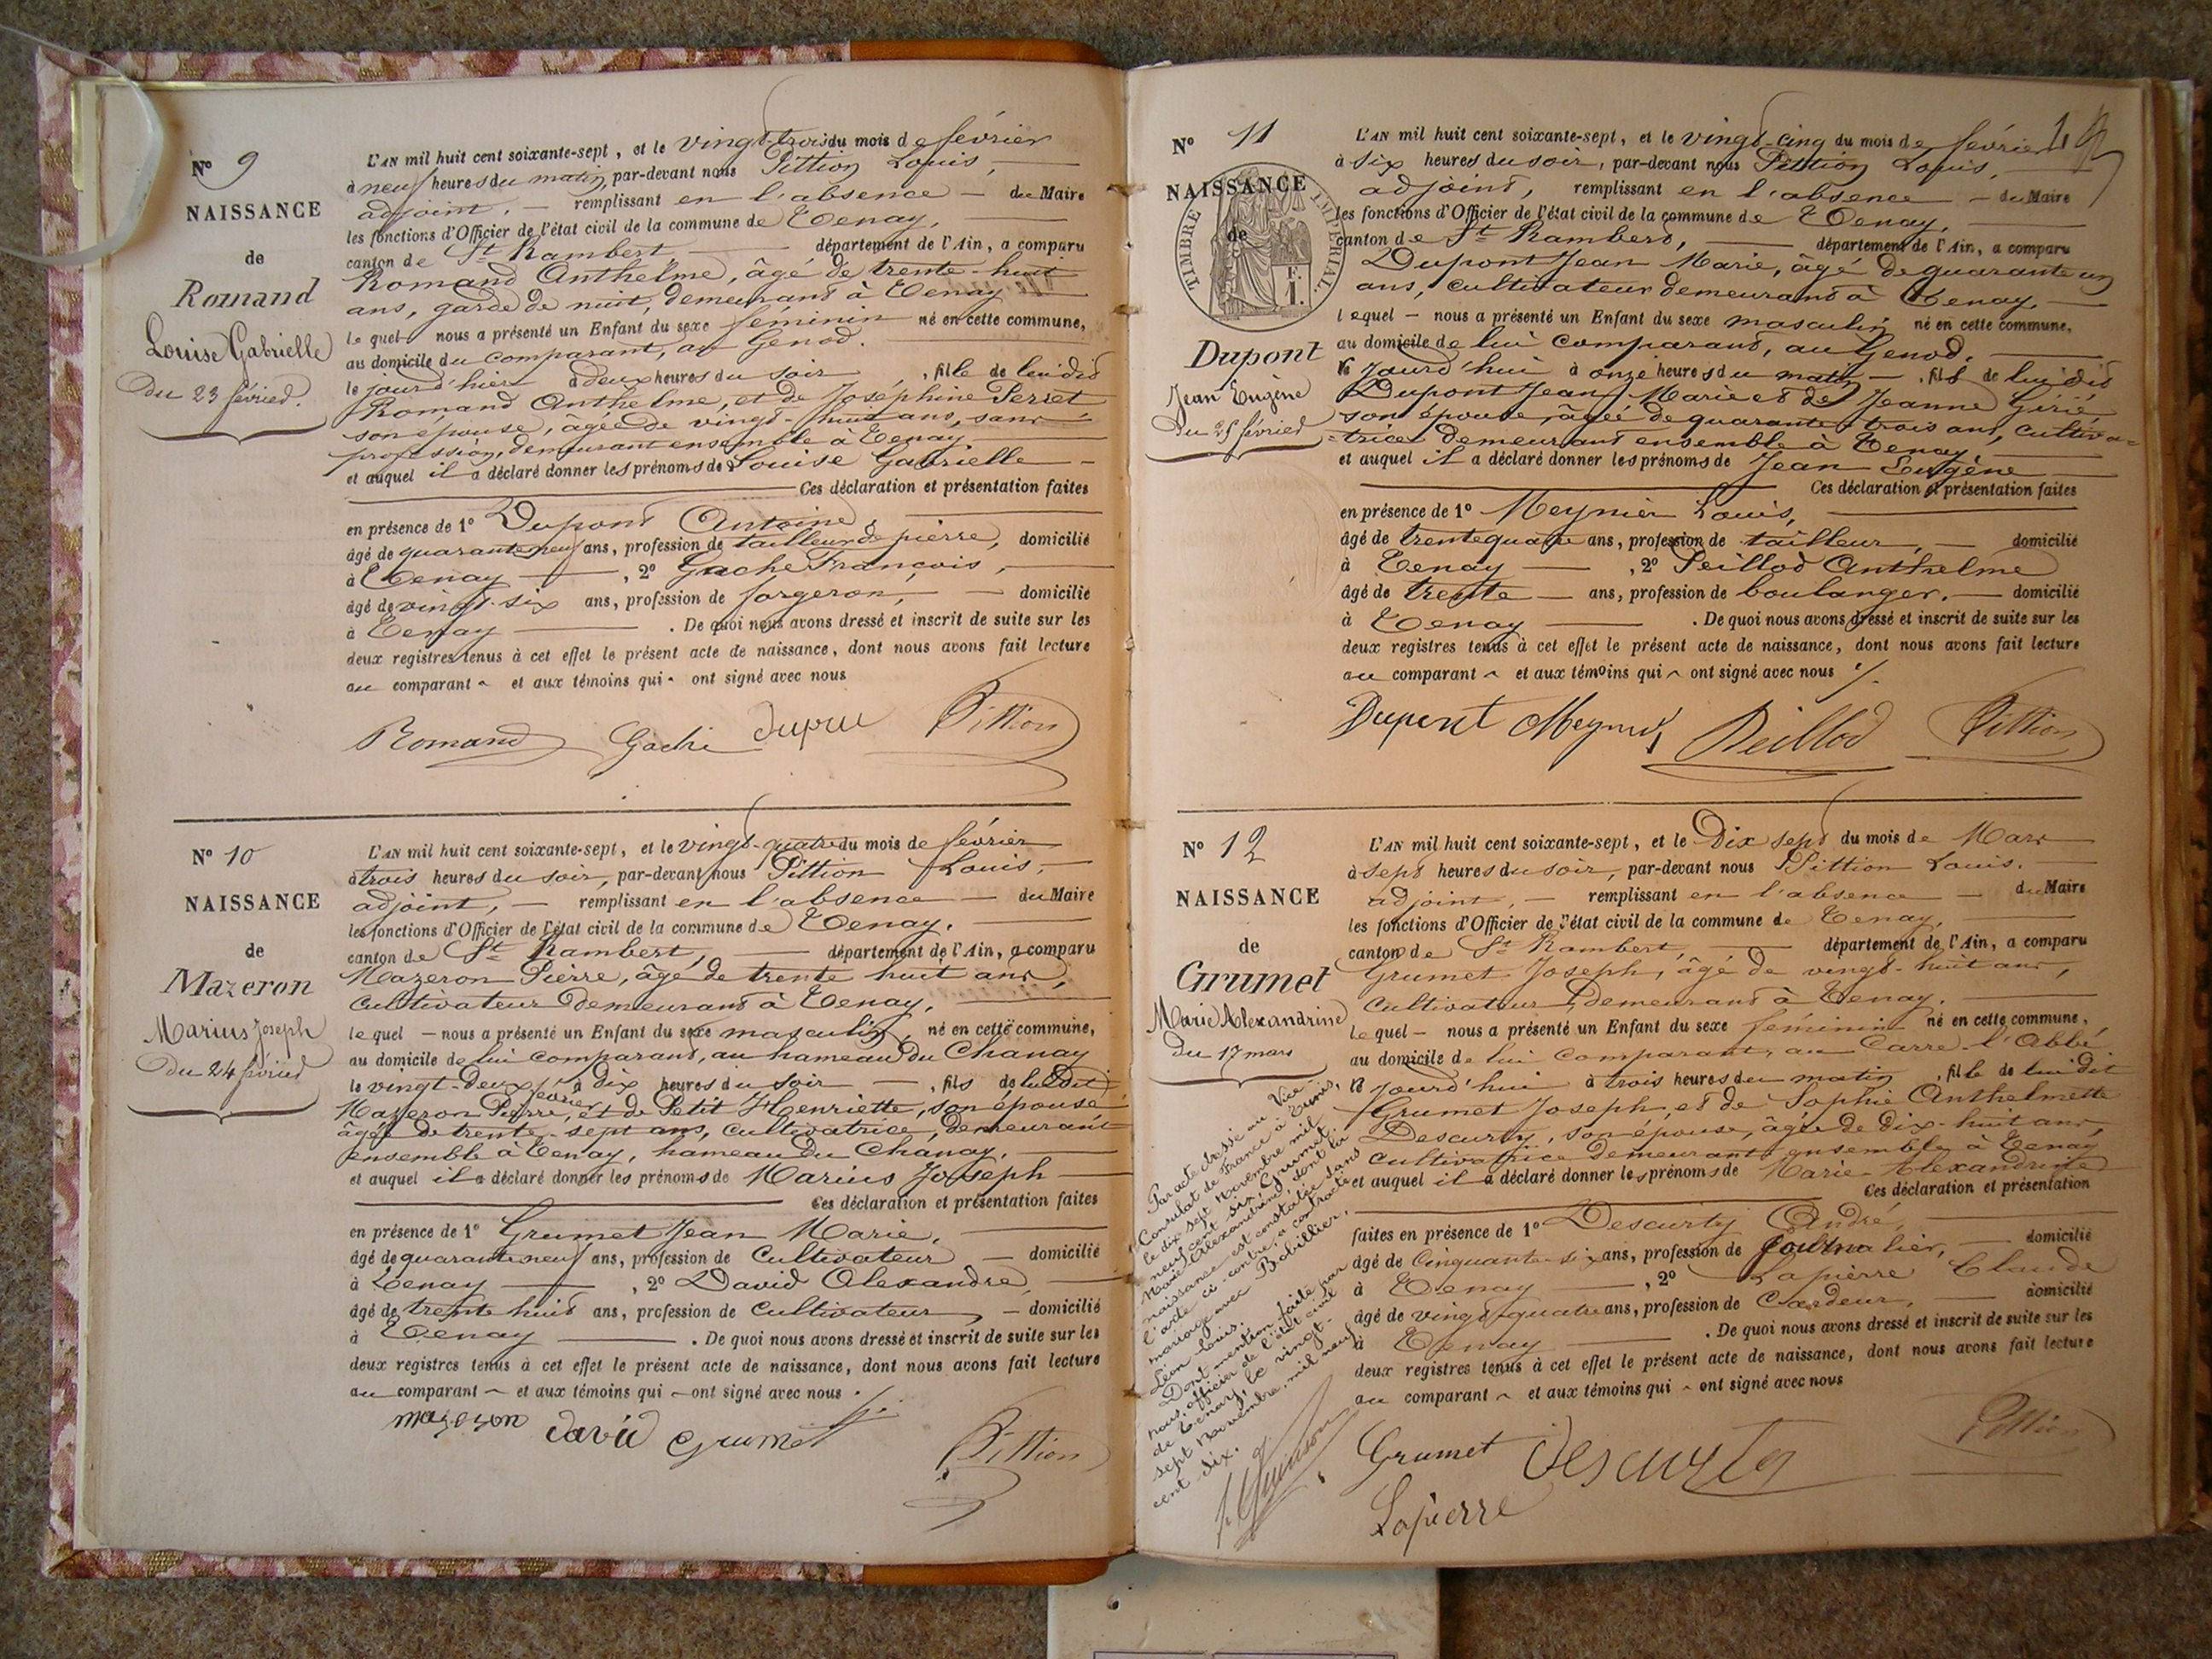 N° 9
NAISSANCE
de
Romand
Louise Gabrielle
du 23 févried.
L'AN mil huit cent soixante-sept, et le vingt-trois du mois de février
à neuf heures du matin, par-devant nous Pittion Louis,
adjoint, remplissant en l'absence du Maire
les fonctions d'Officier de l'état civil de la commune de Tenay,
canton de St Rambert département de l'Ain, a comparu
Romand Anthelme, âgé de trente-huit
ans, garde de nuit, demeurant à Tenay
lequel nous a présenté un Enfant du sexe féminin né en cette commune,
au domicile du comparant, au Genod.
le jourd'hier à deux heures du soir, fille de lui dit
Romand Anthelme, et de Joséphine Perret
son épouse, âgée de vingt-huit ans, sans
profession, demeurant ensemble à Tenay,
et auquel il a déclaré donner les prénoms de Louise Gabrielle
Ces déclaration et présentation faites
en présence de 1° Dupont Antoine,
âgé de quarante neuf ans, profession de tailleur de pierre, domicilié
à Tenay, 2° Gache François,
âgé de vingt-six ans, profession de forgeron, domicilié
à Tenay. De quoi nous avons dressé et inscrit de suite sur les
deux registres tenus à cet effet le présent acte de naissance, dont nous avons fait lecture
au comparant et aux témoins qui ont signé avec nous
Romand Gache Pittion
N° 10
NAISSANCE
de
Mazeron
Marius Joseph
du 24 févried
L'AN mil huit cent soixante-sept, et le vingt-quatre du mois de février
à trois heures du soir, par-devant nous Pittion Louis,
adjoint, remplissant en l'absence du Maire
les fonctions d'Officier de l'état civil de la commune de Tenay,
canton de St Rambert, département de l'Ain, a comparu
Mazeron Pierre, âgé de trente huit ans,
Cultivateur demeurant à Tenay,
lequel nous a présenté un Enfant du sexe masculin, né en cette commune,
au domicile de lui comparant, au hameau du Chanay
le vingt-deux février à dix heures du soir, fils de lui dit
Mazeron Pierre, et de Petit Henriette, son épouse
âgée de trente-sept ans, cultivatrice, demeurant
ensemble à Tenay, hameau du Chanay,
et auquel il a déclaré donner les prénoms de Marius Joseph
Ces déclaration et présentation faites
en présence de 1° Grumet Jean Marie,
âgé de quarante neuf ans, profession de Cultivateur domicilié
à Tenay, 2° David Alexandre,
âgé de trente huit ans, profession de Cultivateur domicilié
à Tenay. De quoi nous avons dressé et inscrit de suite sur les
deux registres tenus à cet effet le présent acte de naissance, dont nous avons fait lecture
au comparant et aux témoins qui ont signé avec nous.
mazeron david Grumet Pittion
N° 11
NAISSANCE
de
TIMBRE IMPERIAL.
Dupont
Jean Eugène
du 25 févried
L'AN mil huit cent soixante-sept, et le vingt-cinq du mois de février
à six heures du soir, par-devant nous Pittion Louis,
adjoint, remplissant en l'absence du Maire
les fonctions d'Officier de l'état civil de la commune de Tenay,
canton de St Rambert, département de l'Ain, a comparu
Dupont Jean Marie, âgé de quarante un
ans, cultivateur demeurant à Tenay,
lequel nous a présenté un Enfant du sexe masculin né en cette commune,
au domicile de lui comparant, au Genod,
le jourd'hui à onze heures du matin, fils de lui dit
Dupont Jean Marie et de Jeanne Girié
son épouse, âgée de quarante-trois ans, cultiva=
=trice demeurant ensemble à Tenay,
et auquel il a déclaré donner les prénoms de Jean Eugène
Ces déclaration et présentation faites
en présence de 1° Meynier Louis,
âgé de trente quatre ans, profession de tailleur, domicilié
à Tenay, 2° Peillod Anthelme
âgé de trente ans, profession de boulanger, domicilié
à Tenay. De quoi nous avons dressé et inscrit de suite sur les
deux registres tenus à cet effet le présent acte de naissance, dont nous avons fait lecture
au comparant et aux témoins qui ont signé avec nous
Dupont Meynier Peillod Pittion
N° 12
NAISSANCE
de
Grumet
Marie Alexandrine
du 17 mars
L'AN mil huit cent soixante-sept, et le Dix sept du mois de Mars
à sept heures du soir, par-devant nous Pittion Louis,
adjoint, remplissant en l'absence du Maire
les fonctions d'Officier de l'état civil de la commune de Tenay,
canton de St Rambert, département de l'Ain, a comparu
Grumet Joseph, âgé de vingt-huit ans,
Cultivateur, demeurant à Tenay.
lequel nous a présenté un Enfant du sexe féminin né en cette commune,
au domicile de lui comparant, au Carre-l'Abbé
le jourd'hui à trois heures du matin, fille de lui dit
Grumet Joseph, et de Sophie Anthelmette
Descurty, son épouse, âgée de dix-huit ans,
cultivatrice demeurant ensemble à Tenay
et auquel il a déclaré donner les prénoms de Marie-Alexandrine
Ces déclaration et présentation
faites en présence de 1° Descurty André,
âgé de Cinquante-six ans, profession de journalier, domicilié
à Tenay, 2° Lapierre Claude
âgé de vingt-quatre ans, profession de Cardeur, domicilié
à Tenay. De quoi nous avons dressé et inscrit de suite sur les
deux registres tenus à cet effet le présent acte de naissance, dont nous avons fait lecture
au comparant et aux témoins qui ont signé avec nous
Grumet Descurty Pittion
Lapierre
Par acte dressé au Vice-
Consulat de France à Tunis,
le dix sept Novembre mil
neuf cent six, Grumet
Marie Alexandrine, dont la
naissance est constatée dans
l'acte ci-contre, a contracté
mariage avec Babillier,
Léon Louis.
Dont mention faite par
nous, officier de l'état civil
de Tenay, le vingt-
sept Novembre mil neuf
cent dix.